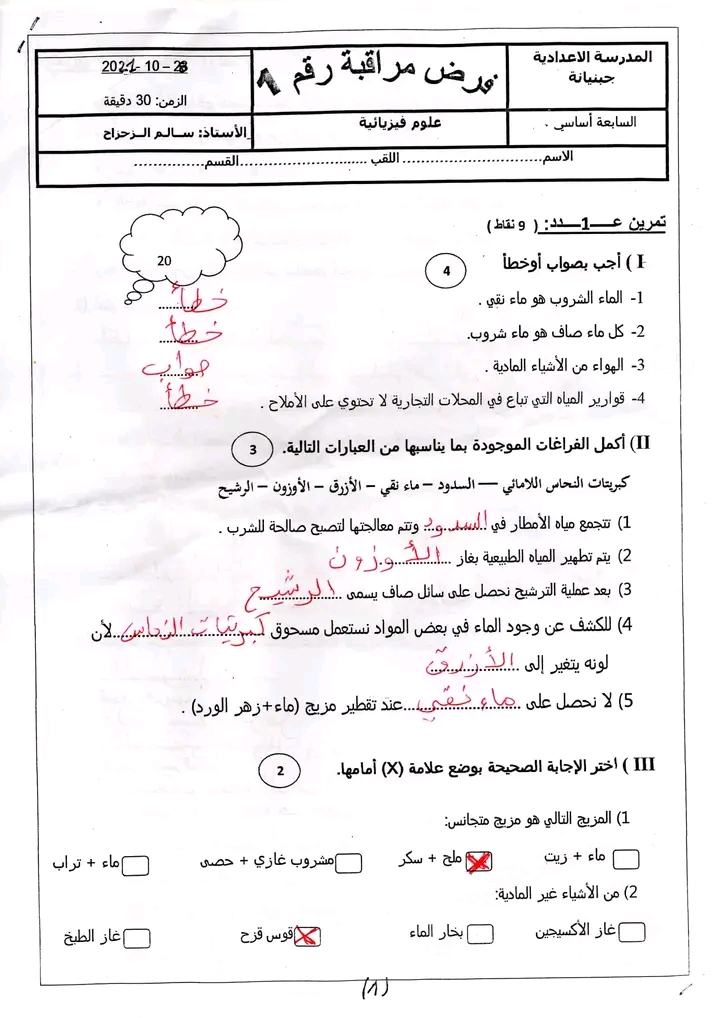 المدرسة الاعدادية
جبنيانة
فرض مراقبة رقم 1
الزمن: 30 دقيقة
السابعة أساسي .
علوم فيزيائية
الأستاذ: سالم الزحزاح
الاسم................................ اللقب ..............................القسم................
تمرين عـــ1ــدد: ( 9 نقاط)
20
I ) أجب بصواب أوخطأ
4
1- الماء الشروب هو ماء نقي . خطأ
2- كل ماء صاف هو ماء شروب. خطأ
3- الهواء من الأشياء المادية . صواب
4- قوارير المياه التي تباع في المحلات التجارية لا تحتوي على الأملاح . خطأ
II) أكمل الفراغات الموجودة بما يناسبها من العبارات التالية.
3
كبريتات النحاس اللامائي – السدود – ماء نقي – الأزرق – الأوزون – الرشيح
1) تتجمع مياه الأمطار في السدود وتتم معالجتها لتصبح صالحة للشرب .
2) يتم تطهير المياه الطبيعية بغاز الأوزون
3) بعد عملية الترشيح نحصل على سائل صاف يسمى الرشيح
4) للكشف عن وجود الماء في بعض المواد نستعمل مسحوق كبريتات النحاس لأن
لونه يتغير إلى الأزرق
5) لا نحصل على ماء نقي عند تقطير مزيج (ماء+زهر الورد) .
III ) اختر الإجابة الصحيحة بوضع علامة (X) أمامها.
2
1) المزيج التالي هو مزيج متجانس:
ماء + زيت ملح + سكر X مشروب غازي + حصى ماء + تراب
2) من الأشياء غير المادية:
غاز الأكسيجين بخار الماء قوس قزح X غاز الطبخ
(1)